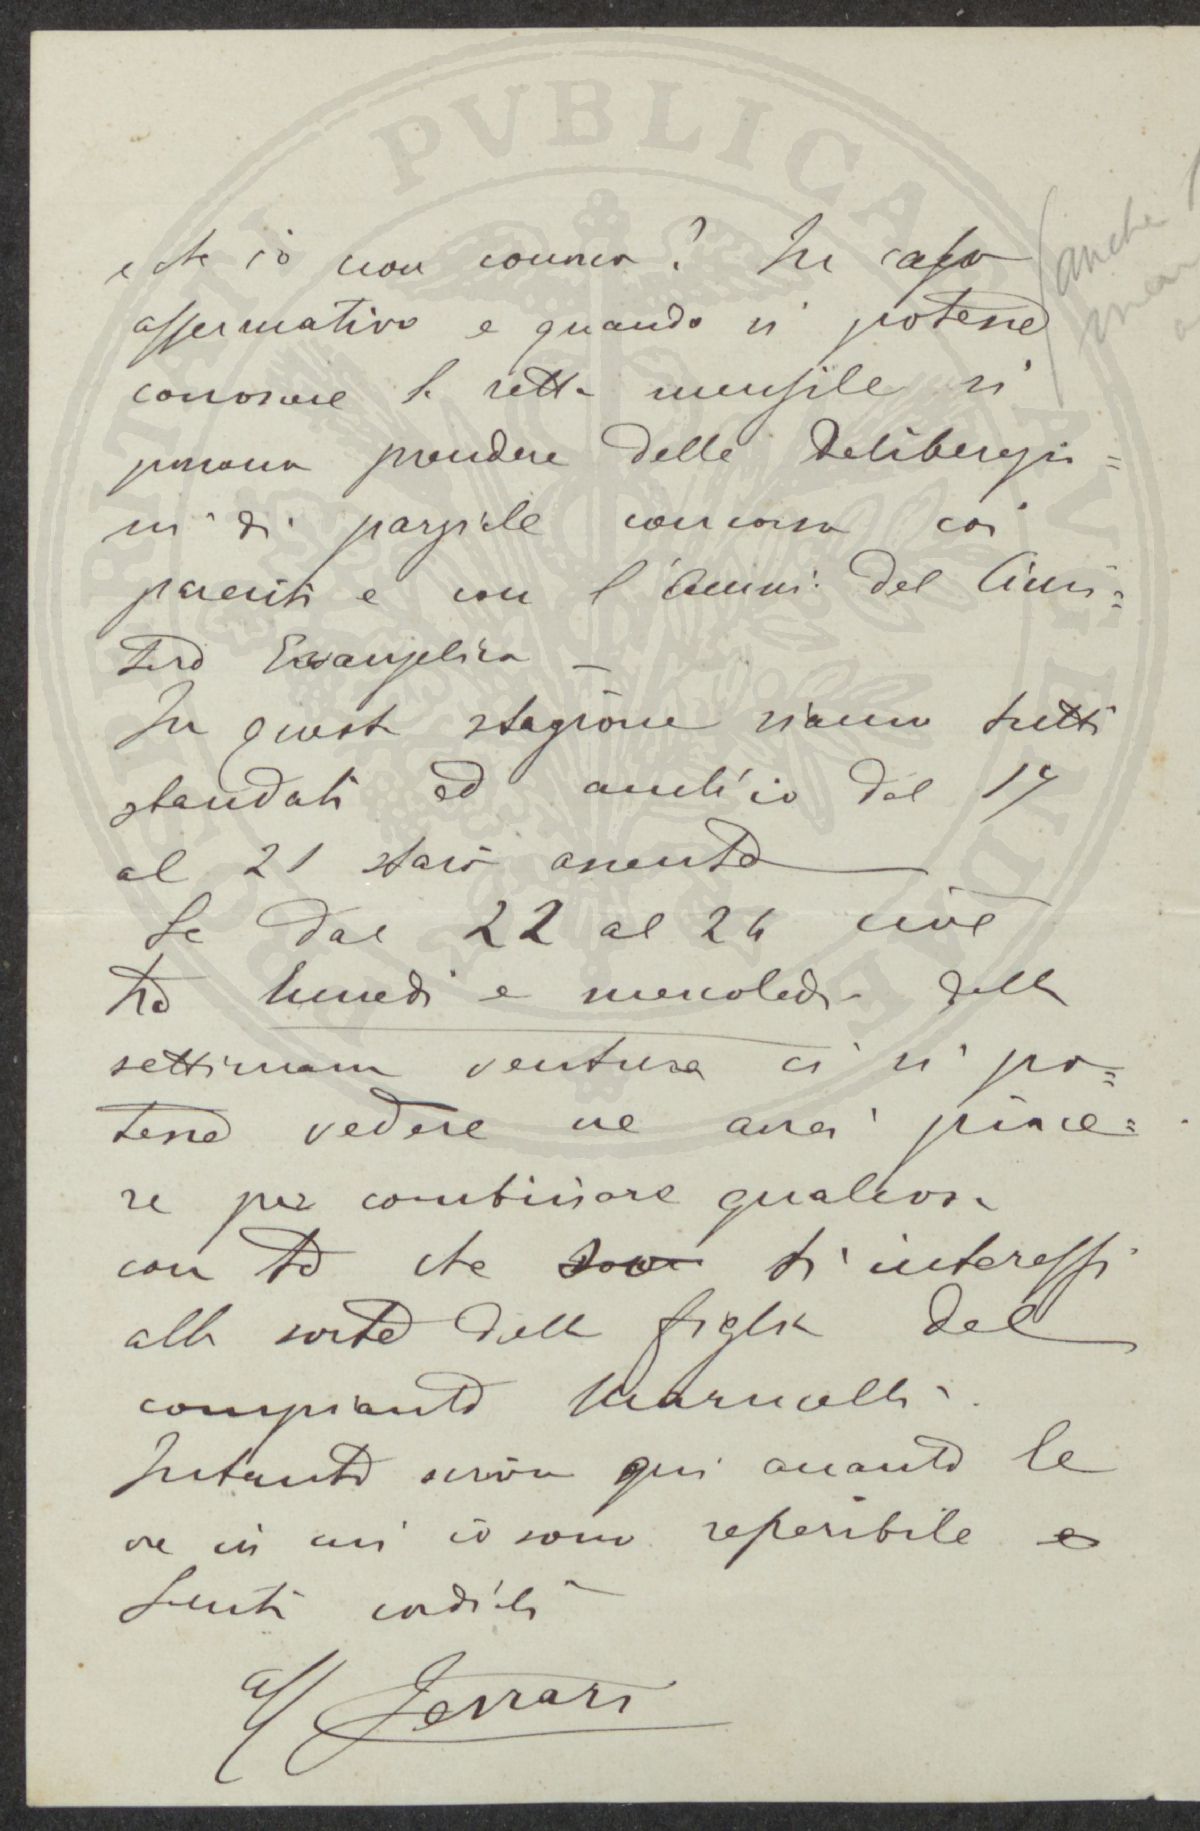 e che io non conosco? In caso
affermativo e quando si potesse
conoscere la retta mensile si
possono prendere delle deliberazio=
ni di parziale concorso coi
parenti e con l'Ammi: del Cimi=
tero Evangelico —
In questa stagione siamo tutti
sbandati ed anch'io dal 17
al 21 starò assente
Se dal 22 al 24 cioè
tra lunedì e mercoledì della
settimana ventura ci si po=
tesse vedere ne avrei piace=
re per combinare qualcosa
con te che ti interessi
alla sorte della figlia del
compianto
Intanto scrivo qui accanto le
ore in cui io sono reperibile e
Saluti cordiali
aff Ferrari
(anche
PVBLICA